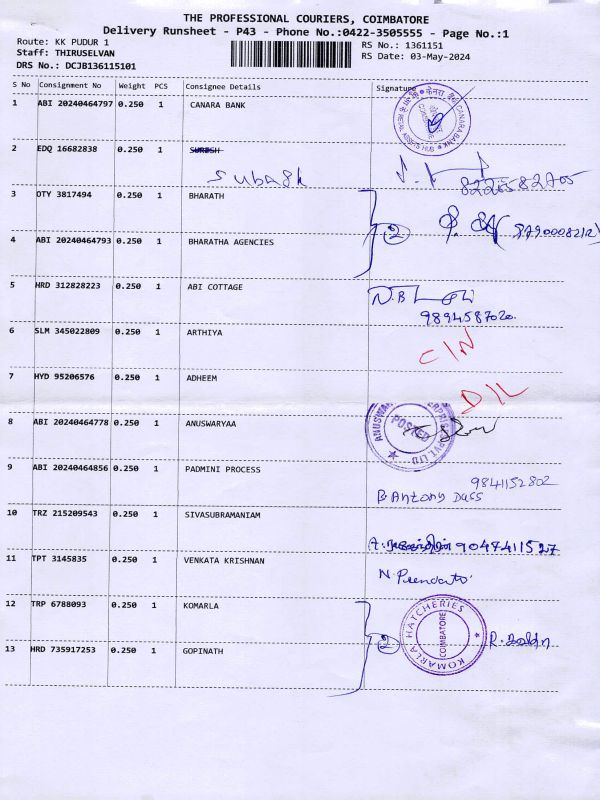 THE PROFESSIONAL COURIERS, COIMBATORE
Delivery Runsheet - P43 - Phone No.:0422-3505555 - Page No.:1
Route: KK PUDUR 1
RS No.: 1361151
Staff: THIRUSELVAN
RS Date: 03-May-2024
DRS No.: DCJB136115101
S No Consignment No Weight PCS Consignee Details Signature
1 ABI 20240464797 0.250 1 CANARA BANK
CANARA BANK
2 EDQ 16682838 0.250 1 SURESH
Subash
3 OTY 3817494 0.250 1 BHARATH
2
4 ABI 20240464793 0.250 1 BHARATHA AGENCIES
5 HRD 312828223 0.250 1 ABI COTTAGE
9894587020.
6 SLM 345022809 0.250 1 ARTHIYA
C/N
7 HYD 95206576 0.250 1 ADHEEM
D/L
8 ABI 20240464778 0.250 1 ANUSWARYAA
POSTED
9 ABI 20240464856 0.250 1 PADMINI PROCESS
9841152802
B. Antony Dass
10 TRZ 215209543 0.250 1 SIVASUBRAMANIAM
9047411527
11 TPT 3145835 0.250 1 VENKATA KRISHNAN
12 TRP 6788093 0.250 1 KOMARLA
KOMARLA HATCHERIES
COIMBATORE
2
13 HRD 735917253 0.250 1 GOPINATH